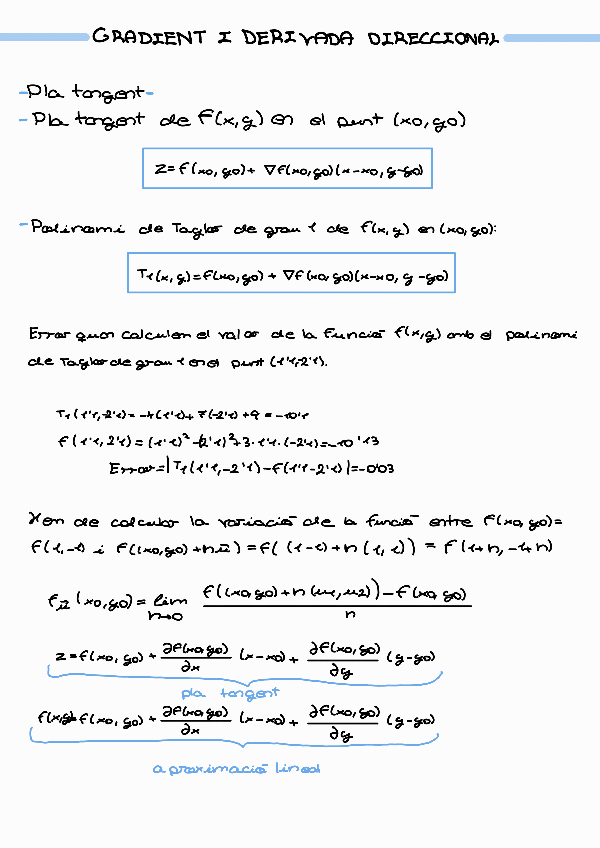 GRADIENT I DERIVADA DIRECCIONAL
-Pla tangent-
- Pla tangent de f(x,y) en el punt (x0,y0)
z=f(x0,y0)+ ∇f(x0,y0)(x-x0, y-y0)
-Polinomi de Taylor de grau 1 de f(x,y) en (x0,y0):
T1(x,y)=f(x0,y0) + ∇f(x0,y0)(x-x0, y-y0)
Error quan calculen el valor de la funció f(x,y) amb el polinomi
de Taylor de grau 1 en el punt (1'1,-2'1).
T1(1'1,-2'1)=-4(1'1)+7(-2'1)+9=-10'1
f(1'1,2'1)=(1'1)²-(2'1)²+3·1'1·(-2'1)=-10'13
Error=|T1(1'1,-2'1)-f(1'1-2'1)|=-0'03
Hem de calcular la variació de la funció entre f(x0,y0)=
f(1,-1) i f((x0,y0)+h·u)=f((1-1)+h(1,1)) = f(1+h,-1+h)
fu(x0,y0)= lim h→0 f((x0,y0)+h(u1,u2))-f(x0,y0) / h
z=f(x0,y0)+ ∂f(x0,y0)/∂x (x-x0)+ ∂f(x0,y0)/∂y (y-y0)
pla tangent
f(x,y)=f(x0,y0)+ ∂f(x0,y0)/∂x (x-x0)+ ∂f(x0,y0)/∂y (y-y0)
aproximació lineal